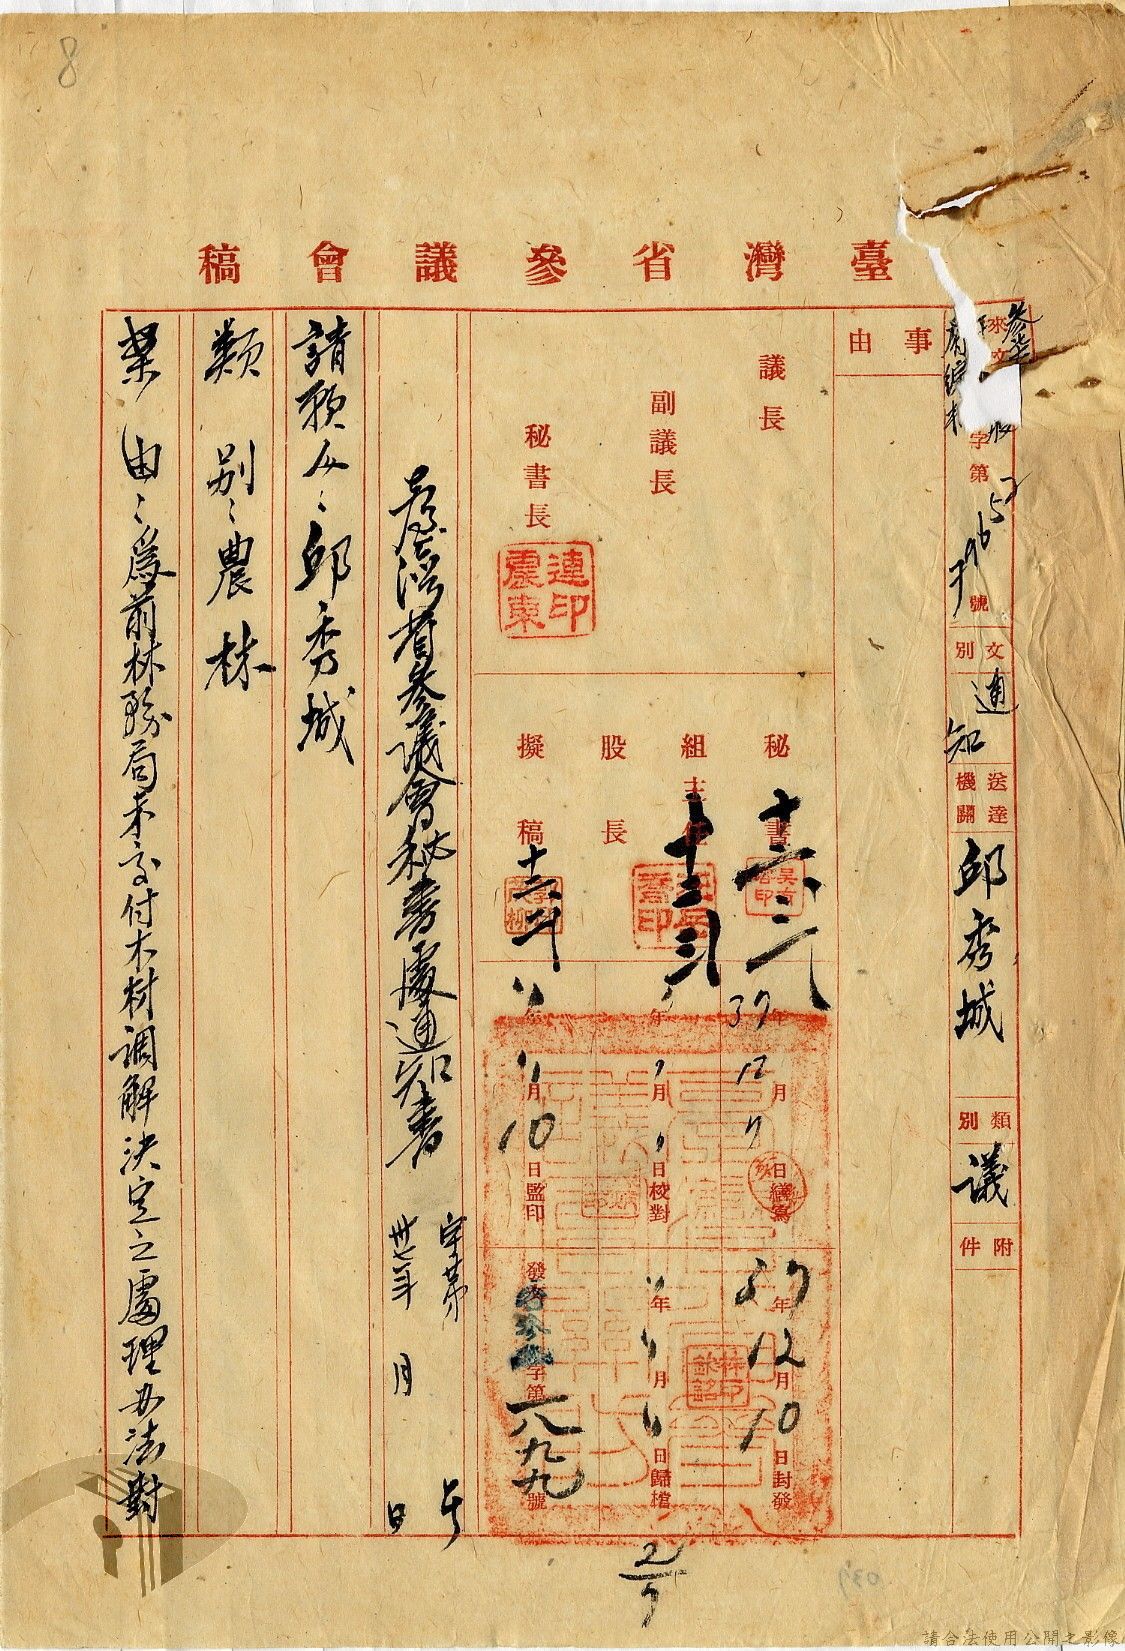 8
臺灣省參議會稿
來文 字第 號
文別 通知
送達機關 邱秀城
類別 議
附件
事由
議長
副議長
秘書長
連震東印
秘書 十二、三
組主任
股長
擬稿
37年12月9日繕寫
年 月 日校對
年 月10日監印
37年12月10日封發
年 月 日歸檔
發文 字第一八九九號
林印
臺灣省參議會秘書處通知書
字第 号
卅七年 月 日
請願人：邱秀城
類別：農林
案由：為前林務局未交付木材調解決定之處理办法對
請合法使用公開之影像